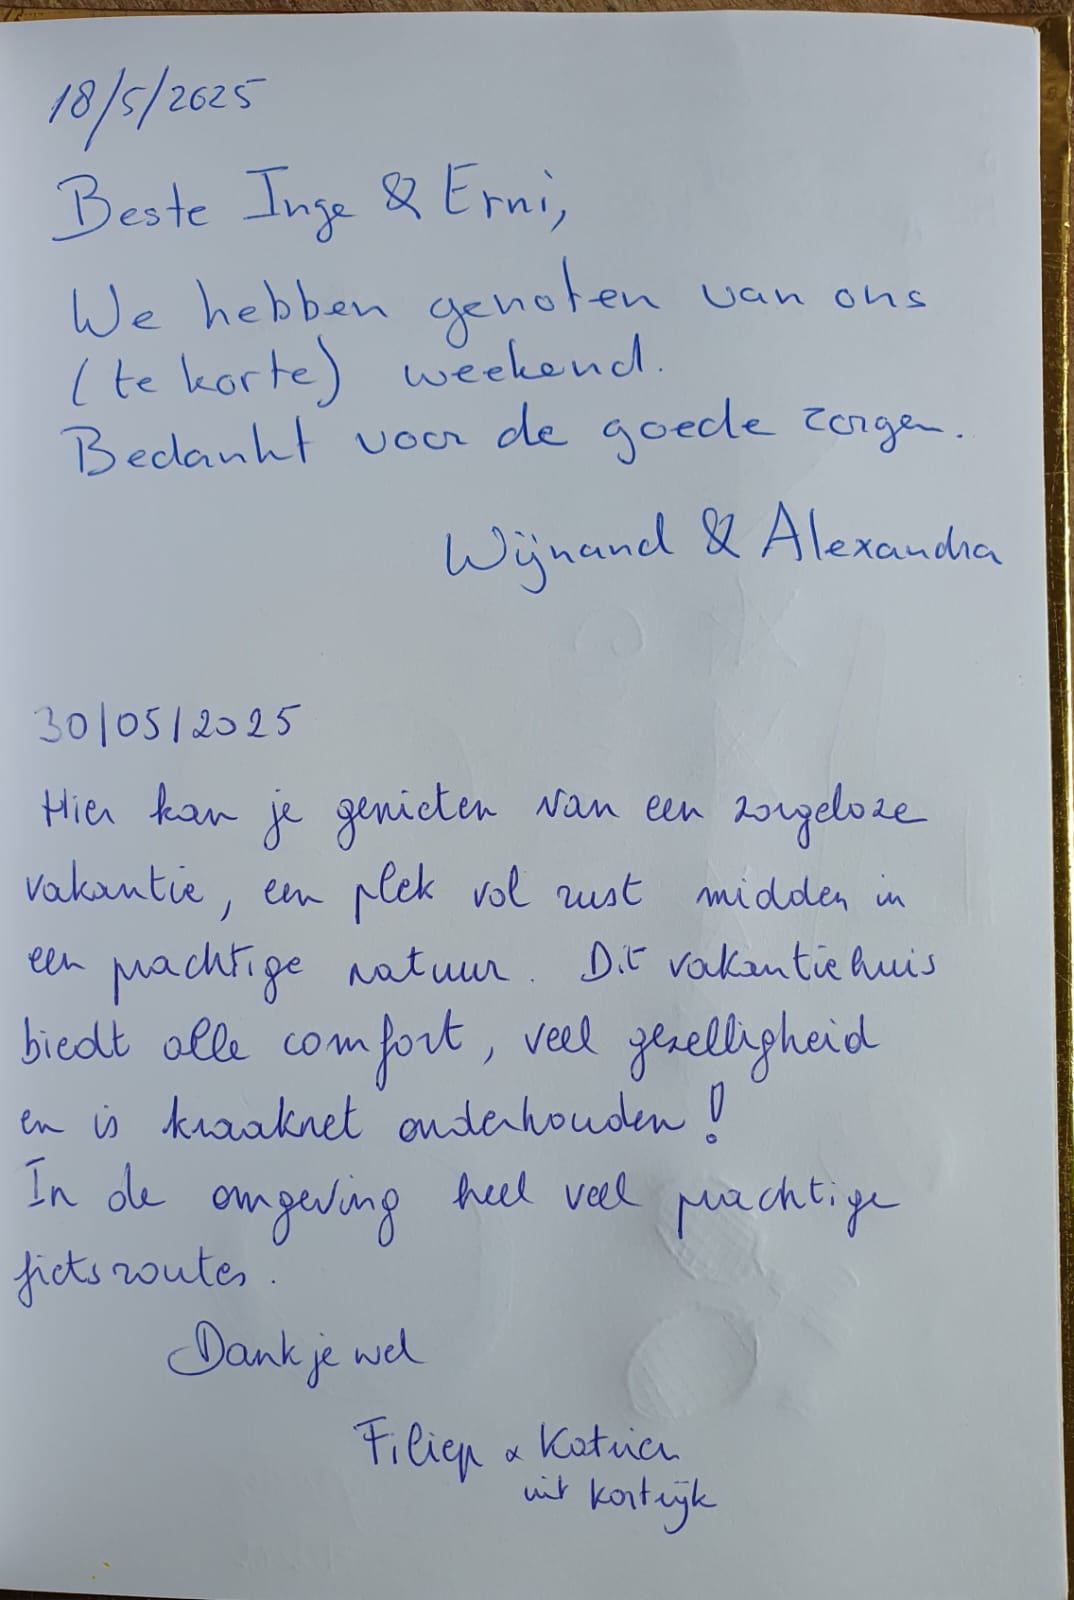 18/5/2025
Beste Inge & Erni,
We hebben genoten van ons
(te korte) weekend.
Bedankt voor de goede zorgen.
Wijnand & Alexandra
30/05/2025
Hier kan je genieten van een zorgeloze
vakantie, een plek vol rust midden in
een prachtige natuur. Dit vakantiehuis
biedt alle comfort, veel gezelligheid
en is kraaknet onderhouden!
In de omgeving heel veel prachtige
fietsroutes.
Dank je wel
Filiep & Katrien
uit Kortrijk